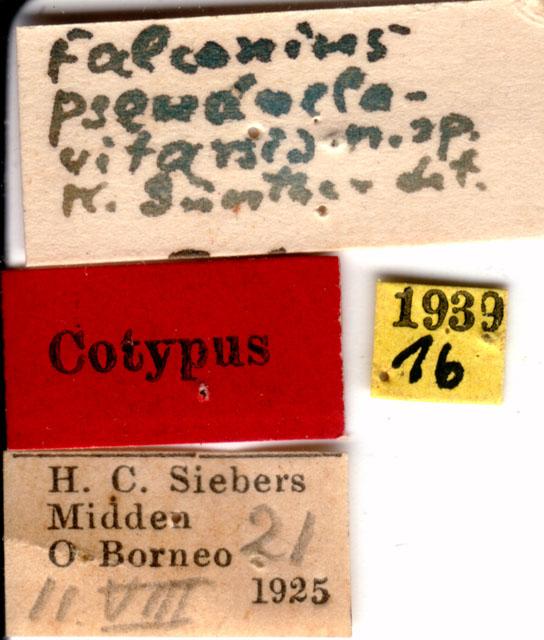 Falconius
pseudocla-
vitarsis n. sp.
K. Günther det.
Cotypus
1939
16
H. C. Siebers
Midden
O. Borneo 21
11 VIII 1925